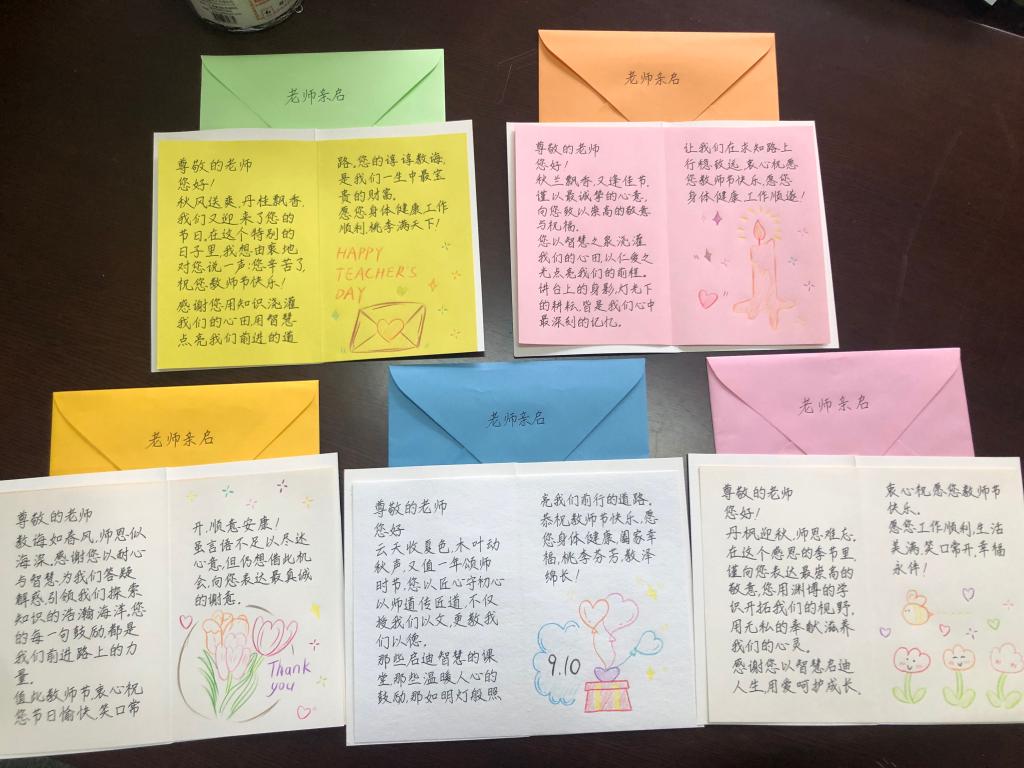 老师亲启
尊敬的老师
您好!
秋风送爽,丹桂飘香,
我们又迎来了您的
节日。在这个特别的
日子里,我想由衷地
对您说一声:您辛苦了,
祝您教师节快乐!
感谢您用知识浇灌
我们的心田,用智慧
点亮我们前进的道
路,您的谆谆教诲,
是我们一生中最宝
贵的财富。
愿您身体健康,工作
顺利,桃李满天下!
HAPPY
TEACHER'S
DAY
老师亲启
尊敬的老师
您好!
秋兰飘香,又逢佳节,
谨以最诚挚的心意,
向您致以崇高的敬意
与祝福。
您以智慧之泉浇灌
我们的心田,以仁爱之
光点亮我们的前程。
讲台上的身影,灯光下
的耕耘,皆是我们心中
最深刻的记忆。
让我们在求知路上
行稳致远,衷心祝愿
您教师节快乐,愿您
身体健康,工作顺遂!
老师亲启
尊敬的老师
教诲如春风,师恩似
海深,感谢您以耐心
与智慧,为我们答疑
解惑,引领我们探索
知识的浩瀚海洋,您
的每一句鼓励,都是
我们前进路上的力
量。
值此教师节衷心祝
您节日愉快,笑口常
开,顺意安康!
虽言语不足以尽达
心意,但仍想借此机
会,向您表达最真诚
的谢意。
Thank
you
老师亲启
尊敬的老师
您好
云天收夏色,木叶动
秋声,又值一年颂师
时节,您以匠心守初心
以师道传匠道,不仅
授我们以文,更教我
们以德。
那些启迪智慧的课
堂那些温暖人心的
鼓励,那如明灯般照
亮我们前行的道路。
恭祝教师节快乐,愿
您身体健康,阖家幸
福,桃李芬芳,教泽
绵长!
9.10
老师亲启
尊敬的老师
您好!
丹枫迎秋,师恩难忘。
在这个感恩的季节里,
谨向您表达最崇高的
敬意,您用渊博的学
识开拓我们的视野,
用无私的奉献滋养
我们的心灵。
感谢您以智慧启迪
人生,用爱呵护成长。
衷心祝愿您教师节
快乐。
愿您工作顺利,生活
美满,笑口常开,幸福
永伴!